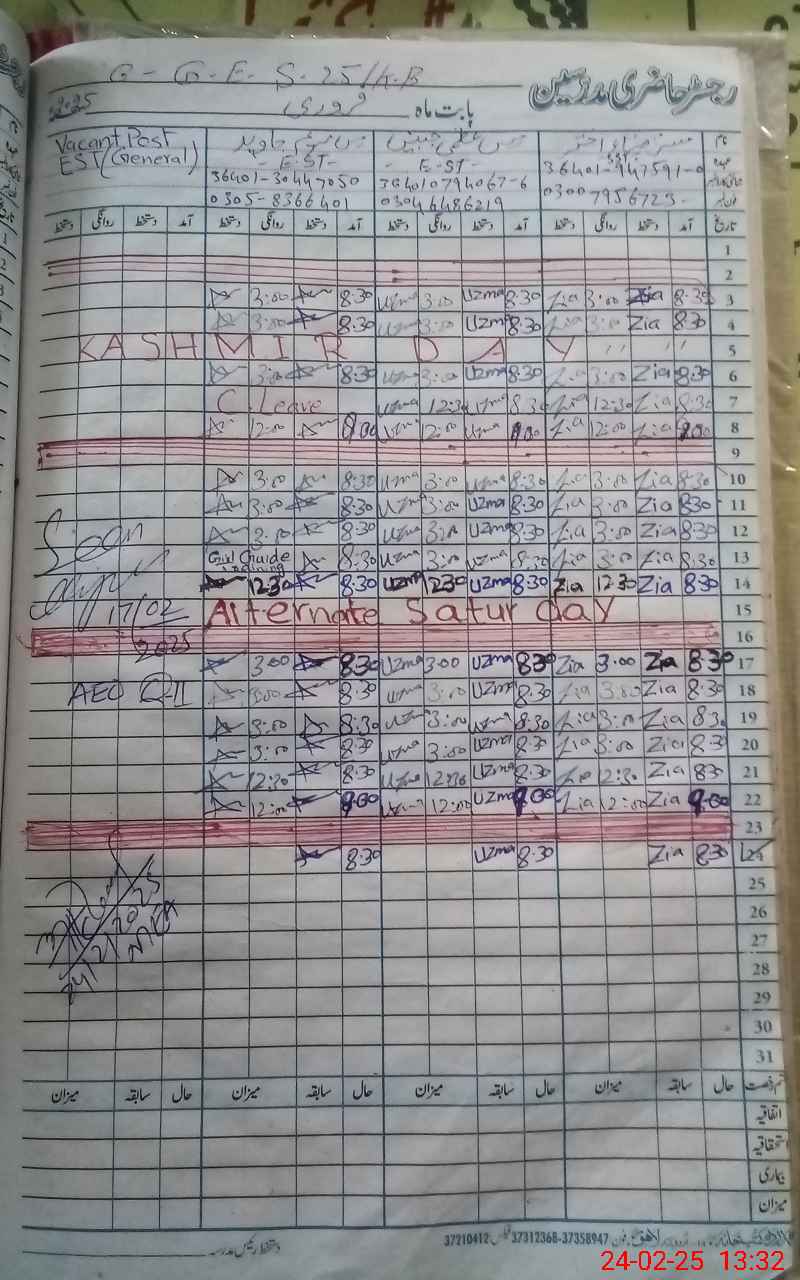 G - G. E. S. 25/4.B رجسٹر حاضری مدرسین
2025 فروری بابت ماہ
Vacant Post
EST (General)
- E.ST - - E.ST - عہدہ
36401-3044 050 364010794067-6 36401-947591-0
0305-8366401 03046486219 0300 7956723
دستخط روانگی دستخط آمد دستخط روانگی دستخط آمد دستخط روانگی دستخط آمد تاریخ
1
2
3:00 8:30 Uzma 3:00 Uzma 8:30 Zia 3:00 Zia 8:30 3
3:00 8:30 Uzma 3:00 Uzma 8:30 Zia 3:00 Zia 8:30 4
KASHMIR DAY " " 5
3:00 8:30 Uzma 3:00 Uzma 8:30 Zia 3:00 Zia 8:30 6
C. Leave Uzma 12:30 Uzma 8:30 Zia 12:30 Zia 8:30 7
12:00 9:00 Uzma 12:00 Uzma 9:00 Zia 12:00 Zia 9:00 8
9
3:00 8:30 Uzma 3:00 Uzma 8:30 Zia 3:00 Zia 8:30 10
3:00 8:30 Uzma 3:00 Uzma 8:30 Zia 3:00 Zia 8:30 11
3:00 8:30 Uzma 3:00 Uzma 8:30 Zia 3:00 Zia 8:30 12
Girl Guide Training 8:30 Uzma 3:00 Uzma 8:30 Zia 3:00 Zia 8:30 13
12:30 8:30 Uzma 12:30 Uzma 8:30 Zia 12:30 Zia 8:30 14
17/02 Alternate Saturday 15
2025 16
3:00 8:30 Uzma 3:00 Uzma 8:30 Zia 3:00 Zia 8:30 17
AEO Q-II 3:00 8:30 Uzma 3:00 Uzma 8:30 Zia 3:00 Zia 8:30 18
3:00 8:30 Uzma 3:00 Uzma 8:30 Zia 3:00 Zia 8:30 19
3:00 8:30 Uzma 3:00 Uzma 8:30 Zia 3:00 Zia 8:30 20
12:30 8:30 Uzma 12:30 Uzma 8:30 Zia 12:30 Zia 8:30 21
12:00 9:00 Uzma 12:00 Uzma 9:00 Zia 12:00 Zia 9:00 22
23
8:30 Uzma 8:30 Zia 8:30 24
25
24/2/2025
MEA
26
27
28
29
30
31
میزان سابقہ حال میزان سابقہ حال میزان سابقہ حال میزان سابقہ حال قسم رخصت
اتفاقیہ
استحقاقیہ
بیماری
میزان
دستخط رئیس مدرسہ
37210412 فیکس 37312368-37358947 فون
24-02-25 13:32